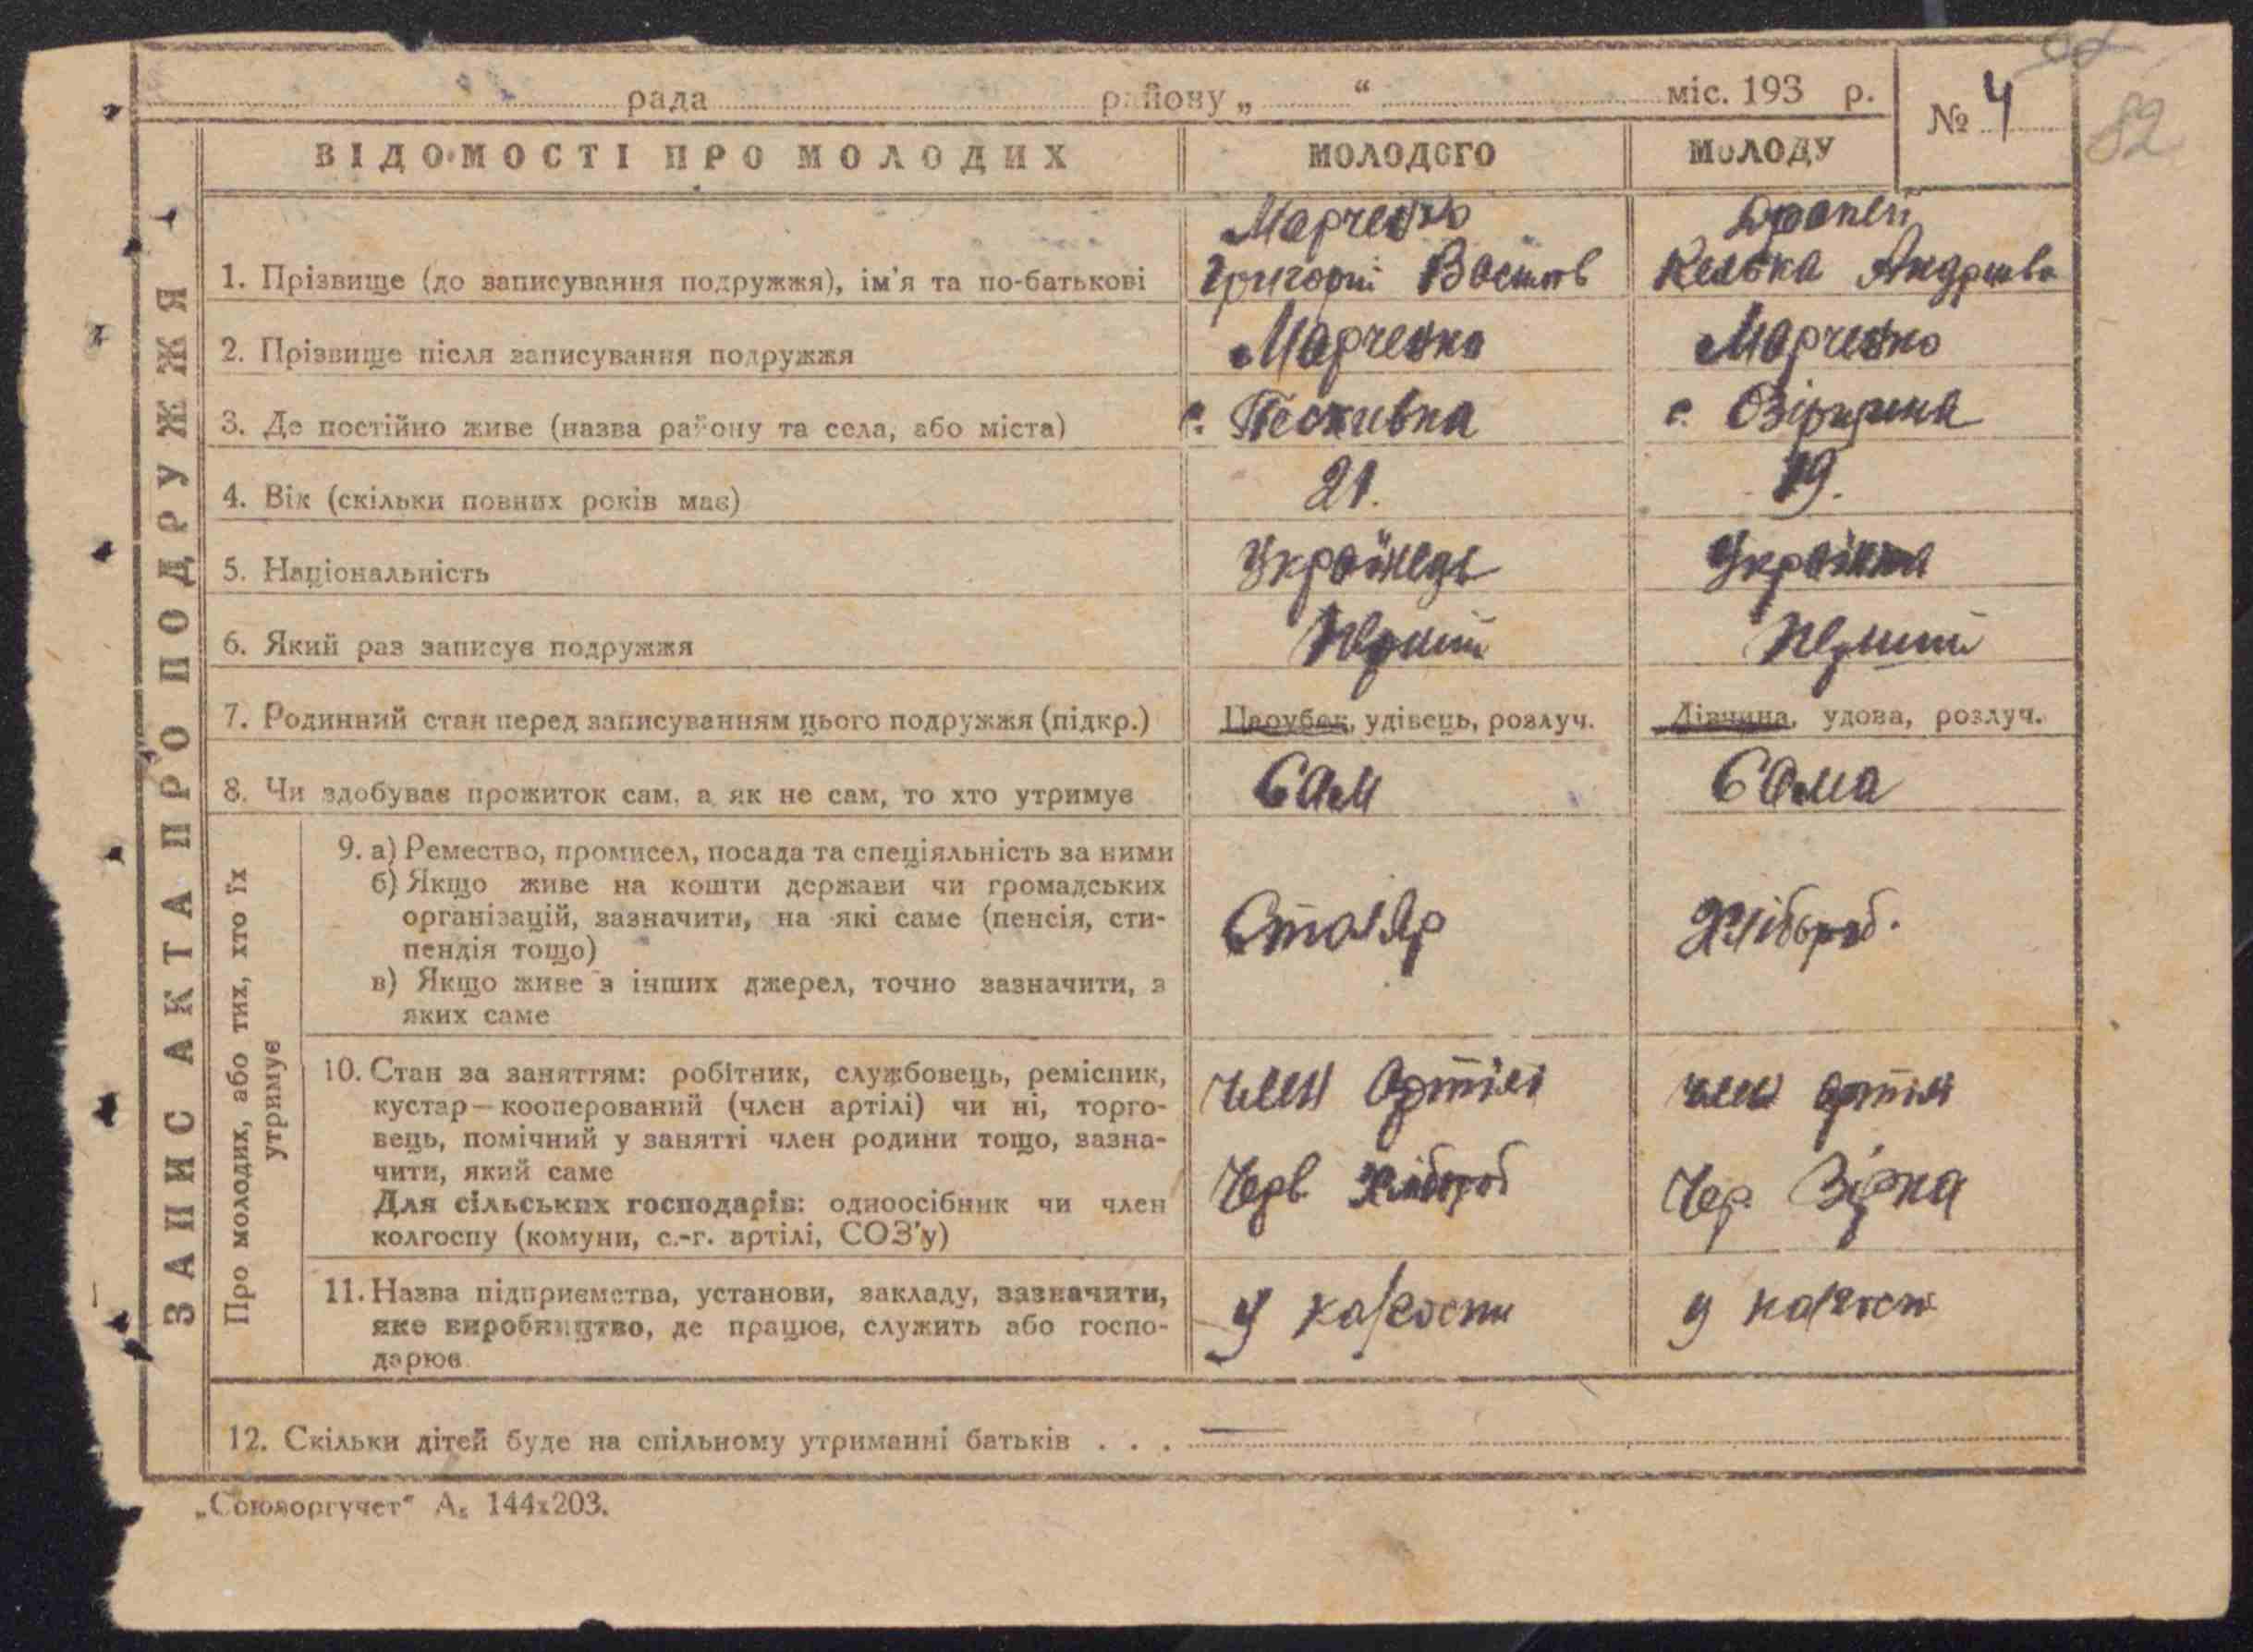 рада району „ “ міс. 193 р.
№ 4
82
ЗАПИС АКТА ПРО ПОДРУЖЖЯ
ВІДОМОСТІ ПРО МОЛОДИХ
МОЛОДОГО
МОЛОДУ
1. Прізвище (до записування подружжя), ім'я та по-батькові
Марченко
Григорій
Андріївна
2. Прізвище після записування подружжя
Марченко
Марченко
3. Де постійно живе (назва району та села, або міста)
с. Пісківка
с. Озірщина
4. Вік (скільки повних років має)
21.
19.
5. Національність
Українець
Українка
6. Який раз записує подружжя
Перший
Перший
7. Родинний стан перед записуванням цього подружжя (підкр.)
Парубок, удівець, розлуч.
Дівчина, удова, розлуч.
8. Чи здобуває прожиток сам, а як не сам, то хто утримує
Сам
Сама
Про молодих, або тих, хто їх
утримує
9. а) Ремество, промисел, посада та спеціяльність за ними
б) Якщо живе на кошти держави чи громадських
організацій, зазначити, на які саме (пенсія, сти-
пендія тощо)
в) Якщо живе з інших джерел, точно зазначити, з
яких саме
Столяр
Хлібороб.
10. Стан за заняттям: робітник, службовець, ремісник,
кустар—кооперований (член артілі) чи ні, торго-
вець, помічний у занятті член родини тощо, зазна-
чити, який саме
Для сільських господарів: одноосібник чи член
колгоспу (комуни, с.-г. артілі, СОЗ'у)
член артілі
Черв. Хлібороб
член артілі
Чер. Зірка
11. Назва підприємства, установи, закладу, зазначити,
яке виробництво, де працює, служить або госпо-
дарює
у колгоспи
у колгосп
12. Скільки дітей буде на спільному утриманні батьків . . . —
„Союзоргучет“ А₅ 144х203.